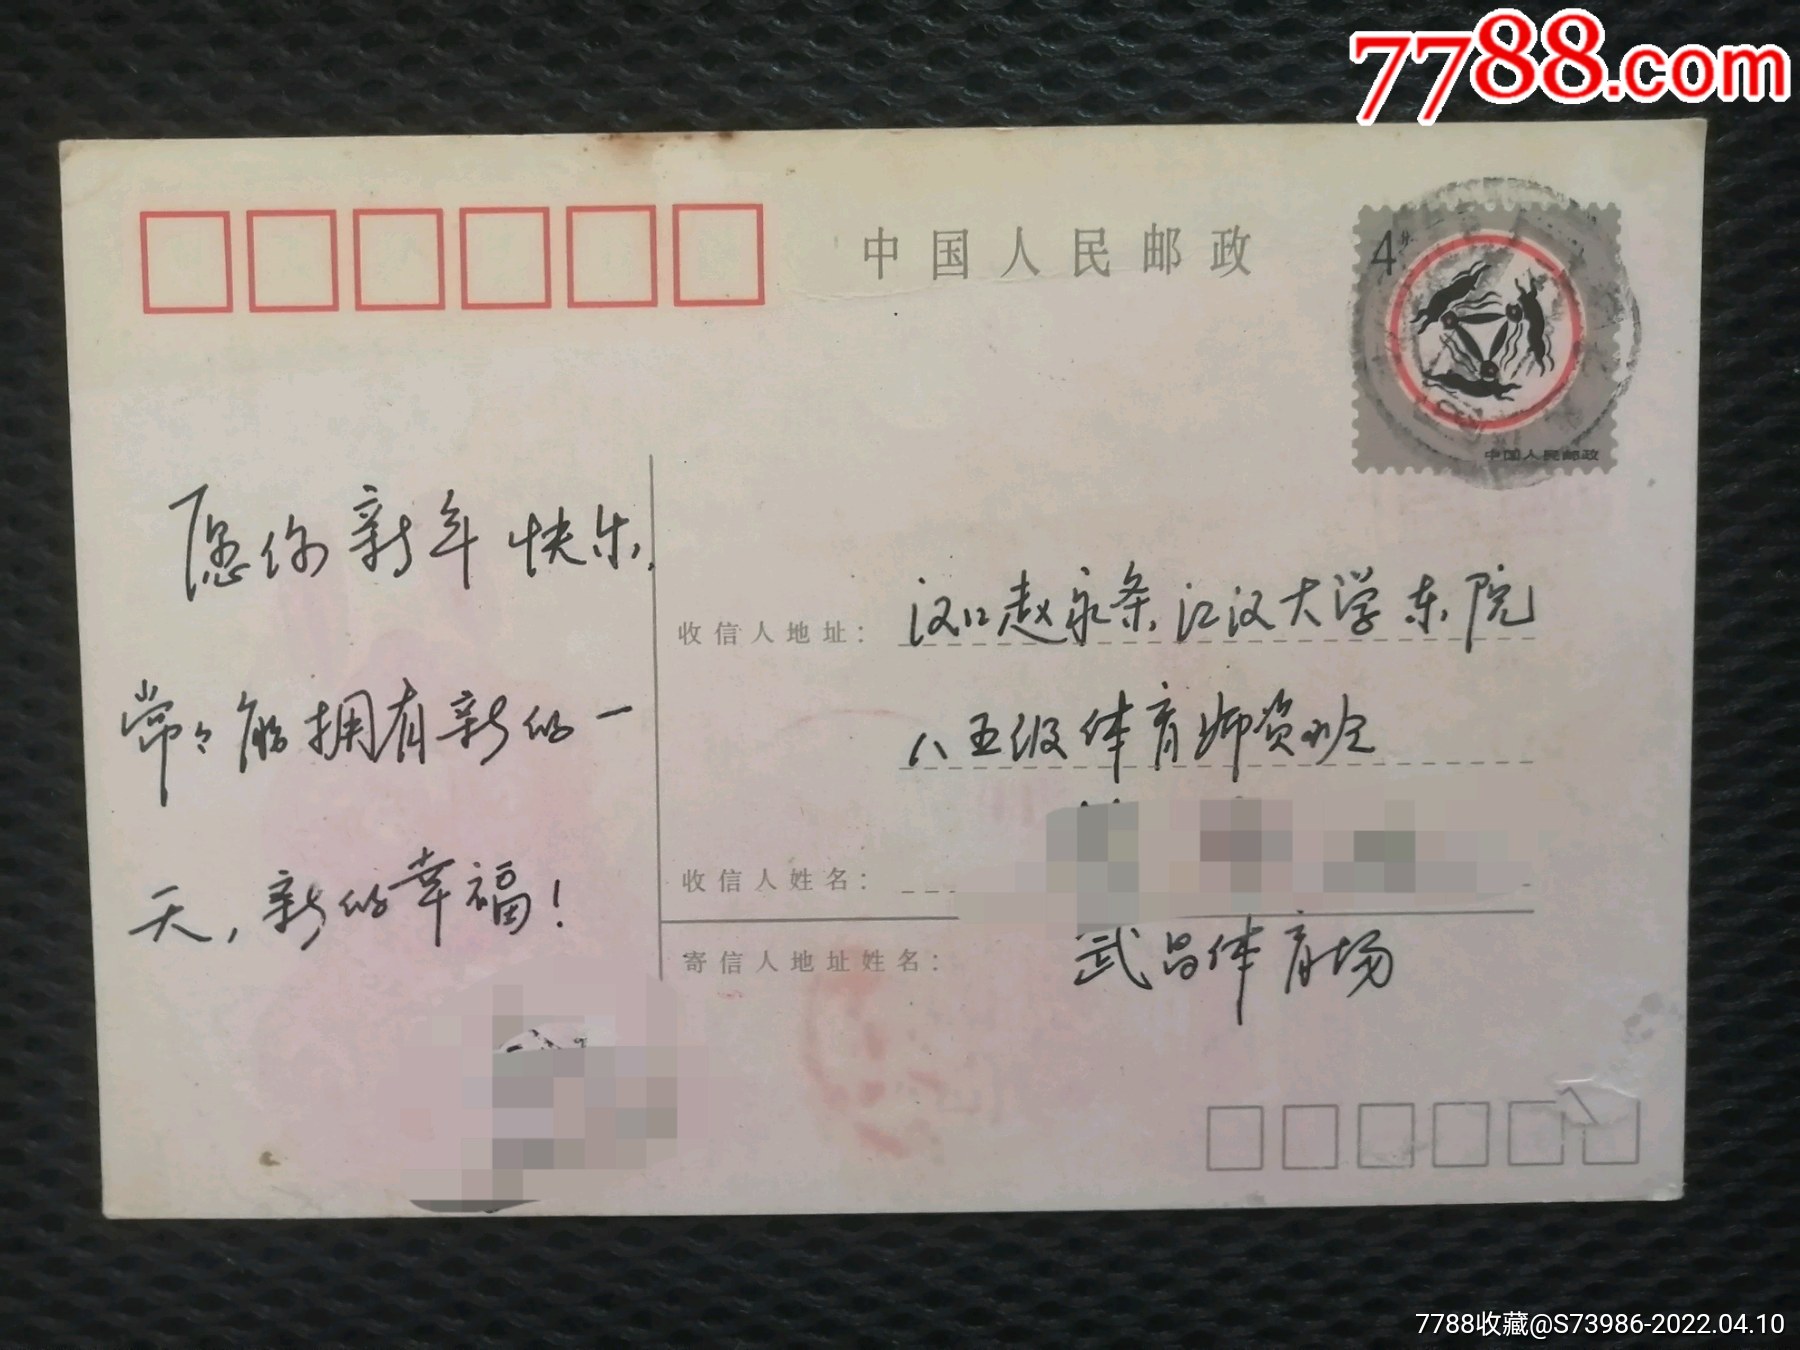 7788.com
中国人民邮政
4分
中国人民邮政
愿你新年快乐,
常々能拥有新的一
天,新的幸福!
收信人地址: 汉口赵家条江汉大学东院
八五级体育师资班
收信人姓名:
寄信人地址姓名: 武昌体育场
7788收藏@S73986-2022.04.10